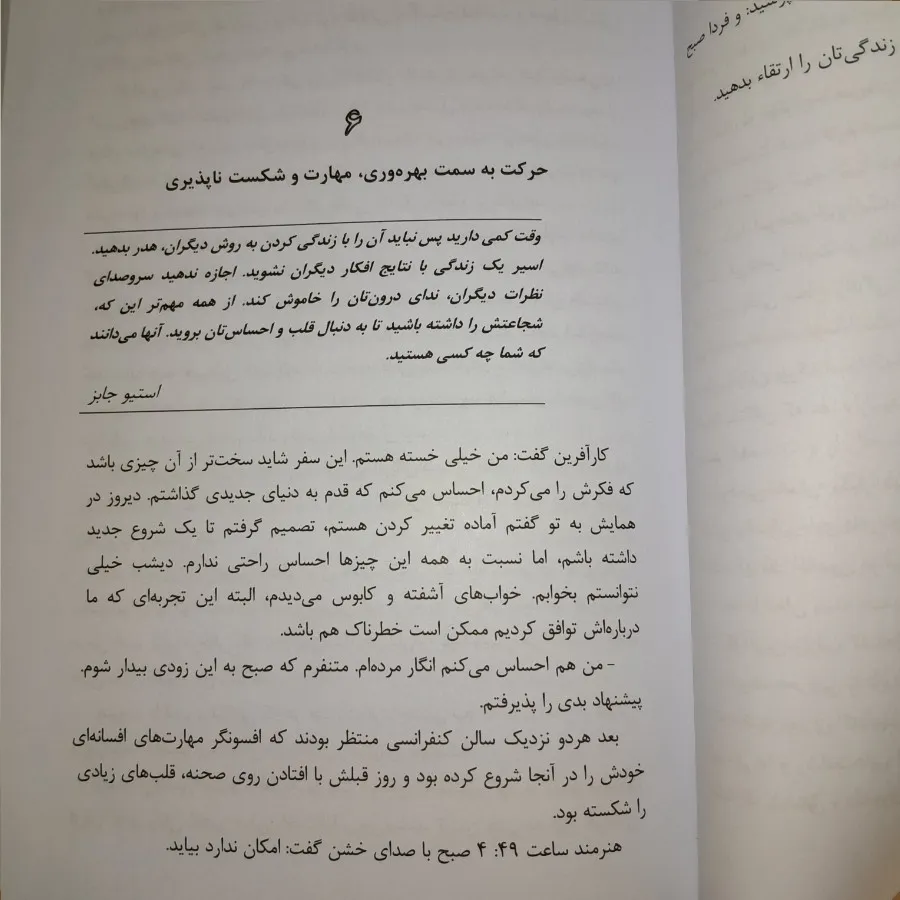 ۶
حرکت به سمت بهره‌وری، مهارت و شکست ناپذیری
وقت کمی دارید پس نباید آن را با زندگی کردن به روش دیگران، هدر بدهید.
اسیر یک زندگی با نتایج افکار دیگران نشوید. اجازه ندهید سروصدای
نظرات دیگران، ندای درون‌تان را خاموش کند. از همه مهم‌تر این که،
شجاعتش را داشته باشید تا به دنبال قلب و احساس‌تان بروید. آنها می‌دانند
که شما چه کسی هستید.
استیو جابز
کارآفرین گفت: من خیلی خسته هستم. این سفر شاید سخت‌تر از آن چیزی باشد
که فکرش را می‌کردم، احساس می‌کنم که قدم به دنیای جدیدی گذاشتم. دیروز در
همایش به تو گفتم آماده تغییر کردن هستم، تصمیم گرفتم تا یک شروع جدید
داشته باشم، اما نسبت به همه این چیزها احساس راحتی ندارم. دیشب خیلی
نتوانستم بخوابم. خواب‌های آشفته و کابوس می‌دیدم، البته این تجربه‌ای که ما
درباره‌اش توافق کردیم ممکن است خطرناک هم باشد.
- من هم احساس می‌کنم انگار مرده‌ام. متنفرم که صبح به این زودی بیدار شوم.
پیشنهاد بدی را پذیرفتم.
بعد هردو نزدیک سالن کنفرانسی منتظر بودند که افسونگر مهارت‌های افسانه‌ای
خودش را در آنجا شروع کرده بود و روز قبلش با افتادن روی صحنه، قلب‌های زیادی
را شکسته بود.
هنرمند ساعت ۴۹: ۴ صبح با صدای خشن گفت: امکان ندارد بیاید.
و فردا صبح
زندگی‌تان را ارتقاء بدهید.